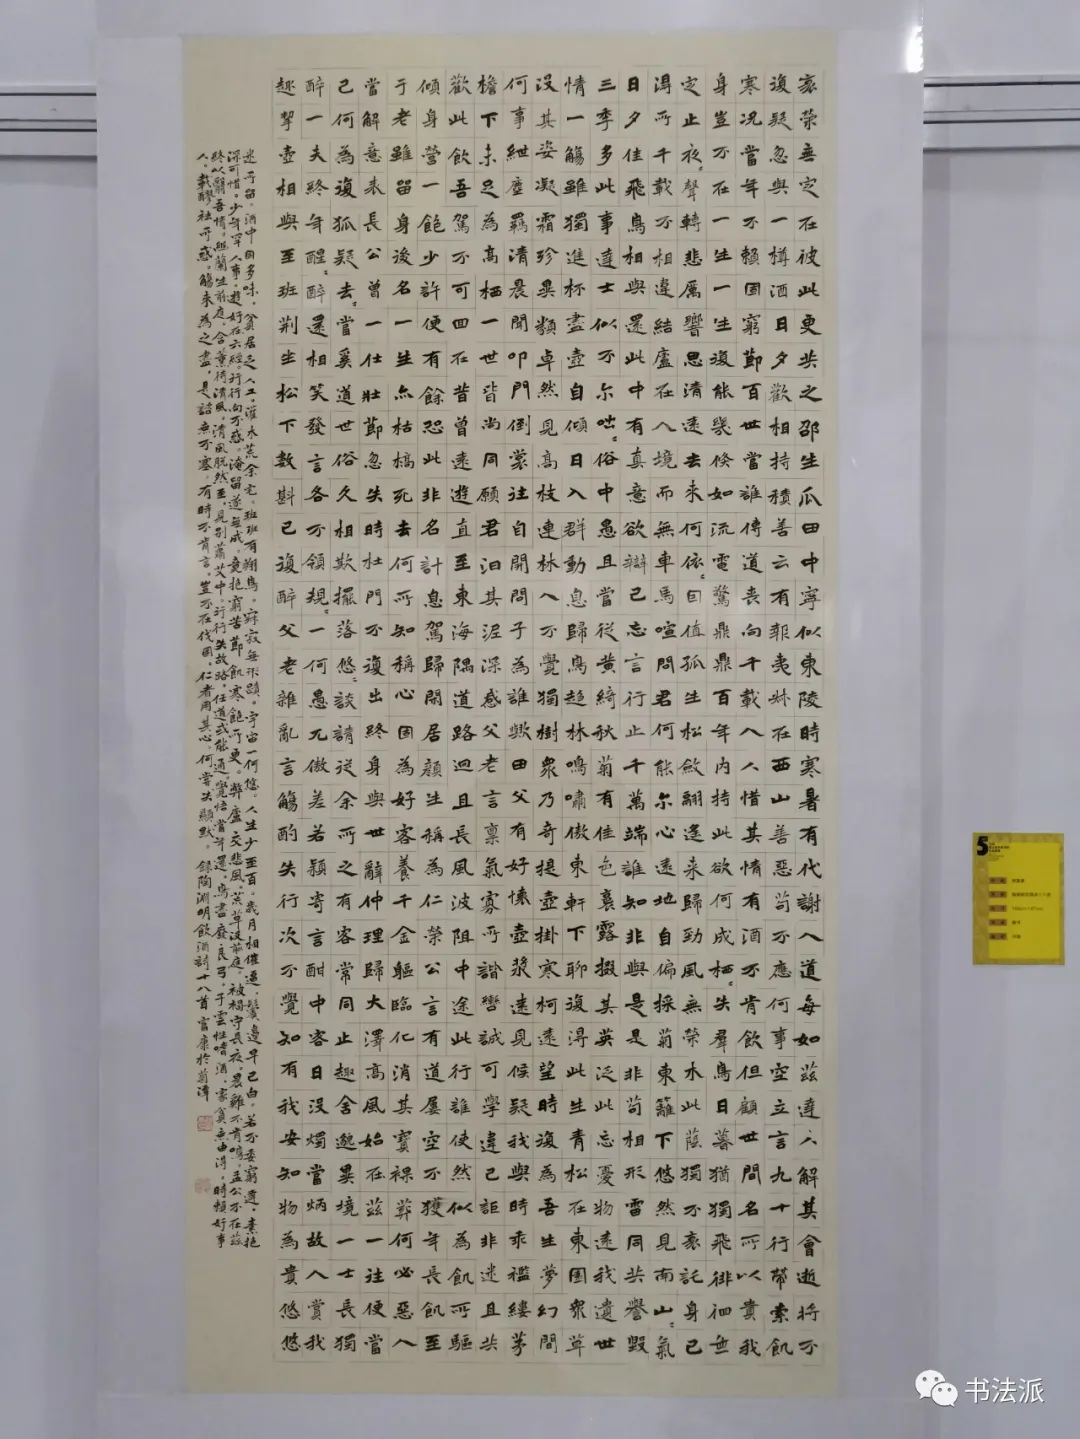 衰榮無定在彼此更共之邵生瓜田中寧似東陵時寒暑有代謝人道每如茲達人解其會逝將不
復疑忽與一樽酒日夕歡相持積善云有報夷叔在西山善惡苟不應何事空立言九十行帶索飢
寒况當年不賴固窮節百世當誰傳道喪向千載人人惜其情有酒不肯飲但顧世間名所以貴我
身豈不在一生一生復能幾倏如流電驚鼎鼎百年內持此欲何成栖〻失羣鳥日暮猶獨飛徘徊無
定止夜〻聲轉悲厲響思清遠去來何依〻自值孤生松斂翮遙來歸勁風無榮木此蔭獨不衰託身已
得所千載不相違結廬在人境而無車馬喧問君何能尔心遠地自偏採菊東籬下悠然見南山〻氣
日夕佳飛鳥相與還此中有真意欲辯已忘言行止千萬端誰知非與是是非苟相形雷同共譽毀
三季多此事達士似不尔咄〻俗中愚且當從黃綺秋菊有佳色裛露掇其英泛此忘憂物遠我遺世
情一觴雖獨進杯盡壺自傾日入群動息歸鳥趨林鳴嘯傲東軒下聊復得此生青松在東園眾草
沒其姿凝霜殄異類卓然見高枝連林人不覺獨樹眾乃奇提壺掛寒柯遠望時復為吾生夢幻間
何事紲塵羈清晨聞叩門倒裳往自開問子為誰歟田父有好懷壺漿遠見候疑我與時乖襤縷茅
檐下未足為高栖一世皆尚同願君汩其泥深感父老言稟氣寡所諧轡誠可學違己詎非迷且共
歡此飲吾駕不可回在昔曾遠遊直至東海隅道路迥且長風波阻中途此行誰使然似為飢所驅
傾身營一飽少許便有餘恐此非名計息駕歸閒居顏生稱為仁榮公言有道屢空不獲年長飢至
于老雖留身後名一生亦枯槁死去何所知稱心固為好客養千金軀臨化消其寶裸葬何必惡人
當解意表長公曾一仕壯節忽失時杜門不復出終身與世辭仲理歸大澤高風始在茲一往便當
已何為復狐疑去〻當奚道世俗久相欺擺落悠〻談請從余所之有客常同止趣舍邈異境一士長獨
醉一夫終年醒〻醉還相笑發言各不領規〻一何愚兀傲差若穎寄言酣中客日沒燭當炳故人賞我
趣挈壺相與至班荊坐松下數斟已復醉父老雜亂言觴酌失行次不覺知有我安知物為貴悠悠
迷所留。酒中固多味。貧居乏人工。灌木荒余宅。班班有翔鳥。寂寂無行跡。宇宙一何悠。人生少至百。歲月相催逼。鬢邊早已白。若不委窮達。素抱
深可惜。少年罕人事。遊好在六經。行行向不惑。淹留遂無成。竟抱窮苦節。飢寒飽所更。弊廬交悲風。荒草沒前庭。被褐守長夜。晨雞不肯鳴。孟公不在茲
終以翳吾情。幽蘭生前庭。含薰待清風。清風脫然至。見別蕭艾中。行行失故路。任道或能通。覺悟當年還。鳥盡廢良弓。子雲性嗜酒。家貧無由得。時賴好事
人。載醪袪所惑。觴來為之盡。是諮無不塞。有時不肯言。豈不在伐國。仁者用其心。何嘗失顯默。錄陶淵明飲酒詩十八首
5
书法派